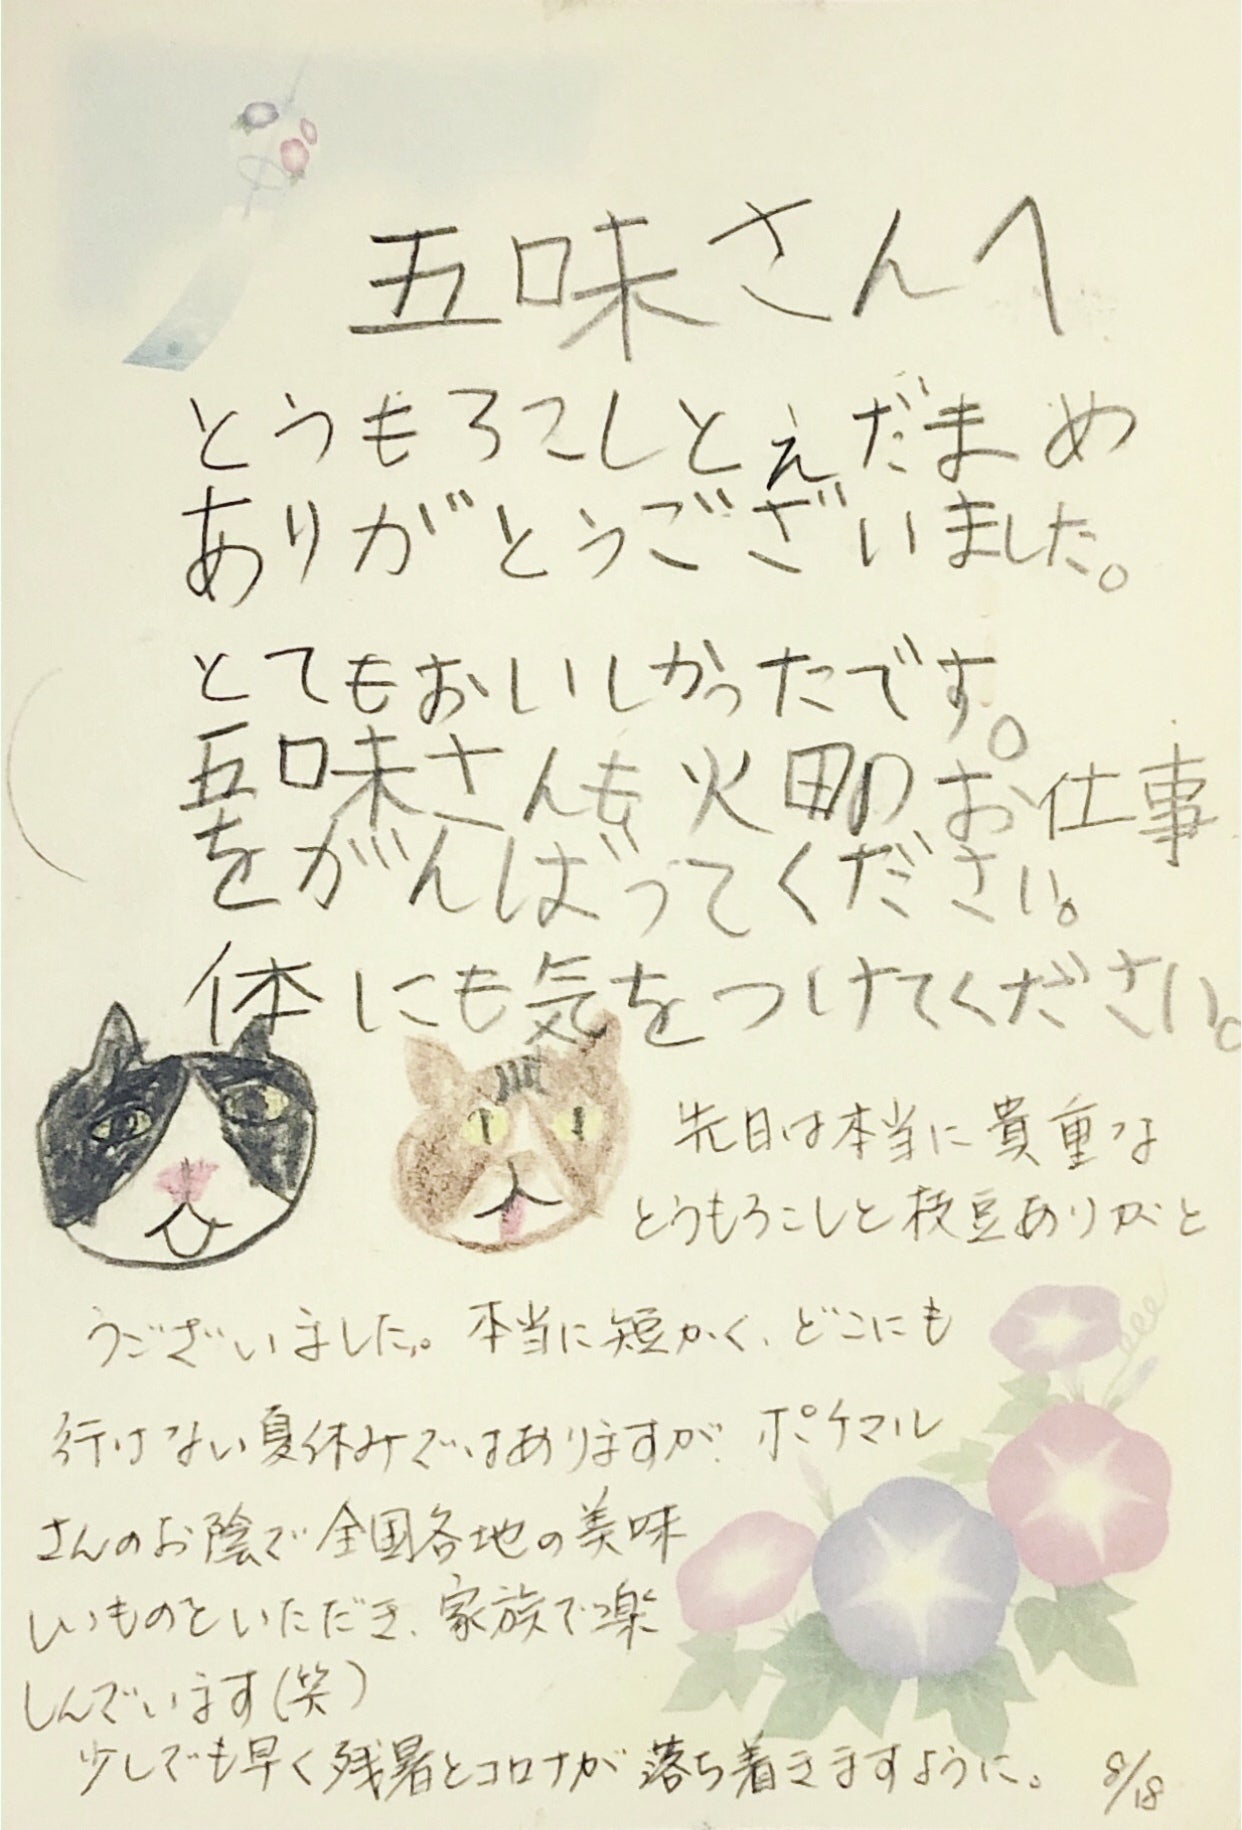 五味さんへ
とうもろこしとえだまめ
ありがとうございました。
とてもおいしかったです。
五味さんも火田のお仕事
をがんばってください。
体にも気をつけてください。
先日は本当に貴重な
とうもろこしと枝豆ありがと
うございました。本当に短かく、どこにも
行けない夏休みではありますが、ポケマル
さんのお陰で全国各地の美味
しいものをいただき、家族で楽
しんでいます(笑)
少しでも早く残暑とコロナが落ち着きますように。 8/18